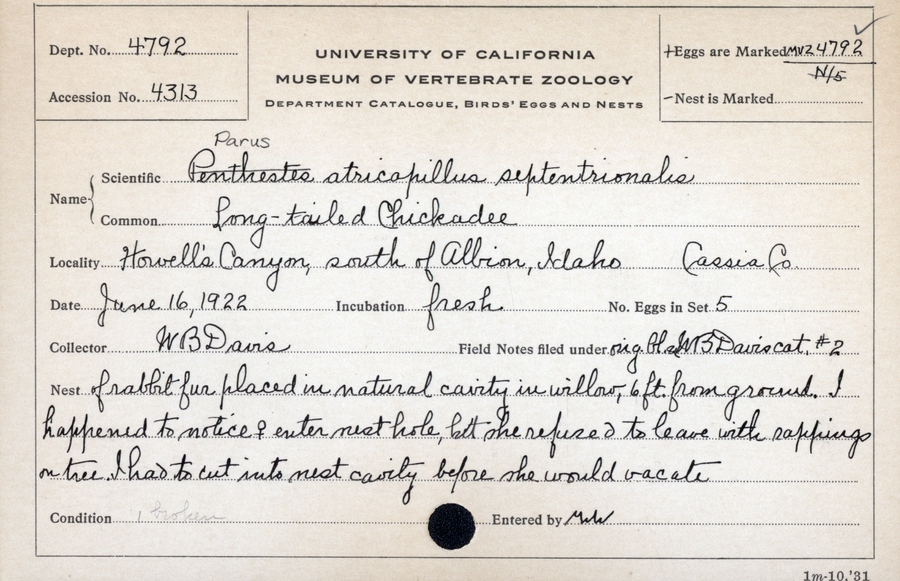 Dept. No. 4792
Accession No. 4313
UNIVERSITY OF CALIFORNIA
MUSEUM OF VERTEBRATE ZOOLOGY
DEPARTMENT CATALOGUE, BIRDS' EGGS AND NESTS
+Eggs are Marked MVZ 4792
N/5
-Nest is Marked
Parus
Name { Scientific Penthestes atricapillus septentrionalis
Common Long-tailed Chickadee
Locality Howell's Canyon, south of Albion, Idaho Cassia Co.
Date June 16, 1922 Incubation fresh No. Eggs in Set 5
Collector WB Davis Field Notes filed under orig WB Davis cat. #2
Nest of rabbit fur placed in natural cavity in willow, 6 ft. from ground. I
happened to notice ♀ enter nest hole, but she refused to leave with rappings
on tree. I had to cut into nest cavity before she would vacate
Condition 1 broken Entered by
1m-10,'31